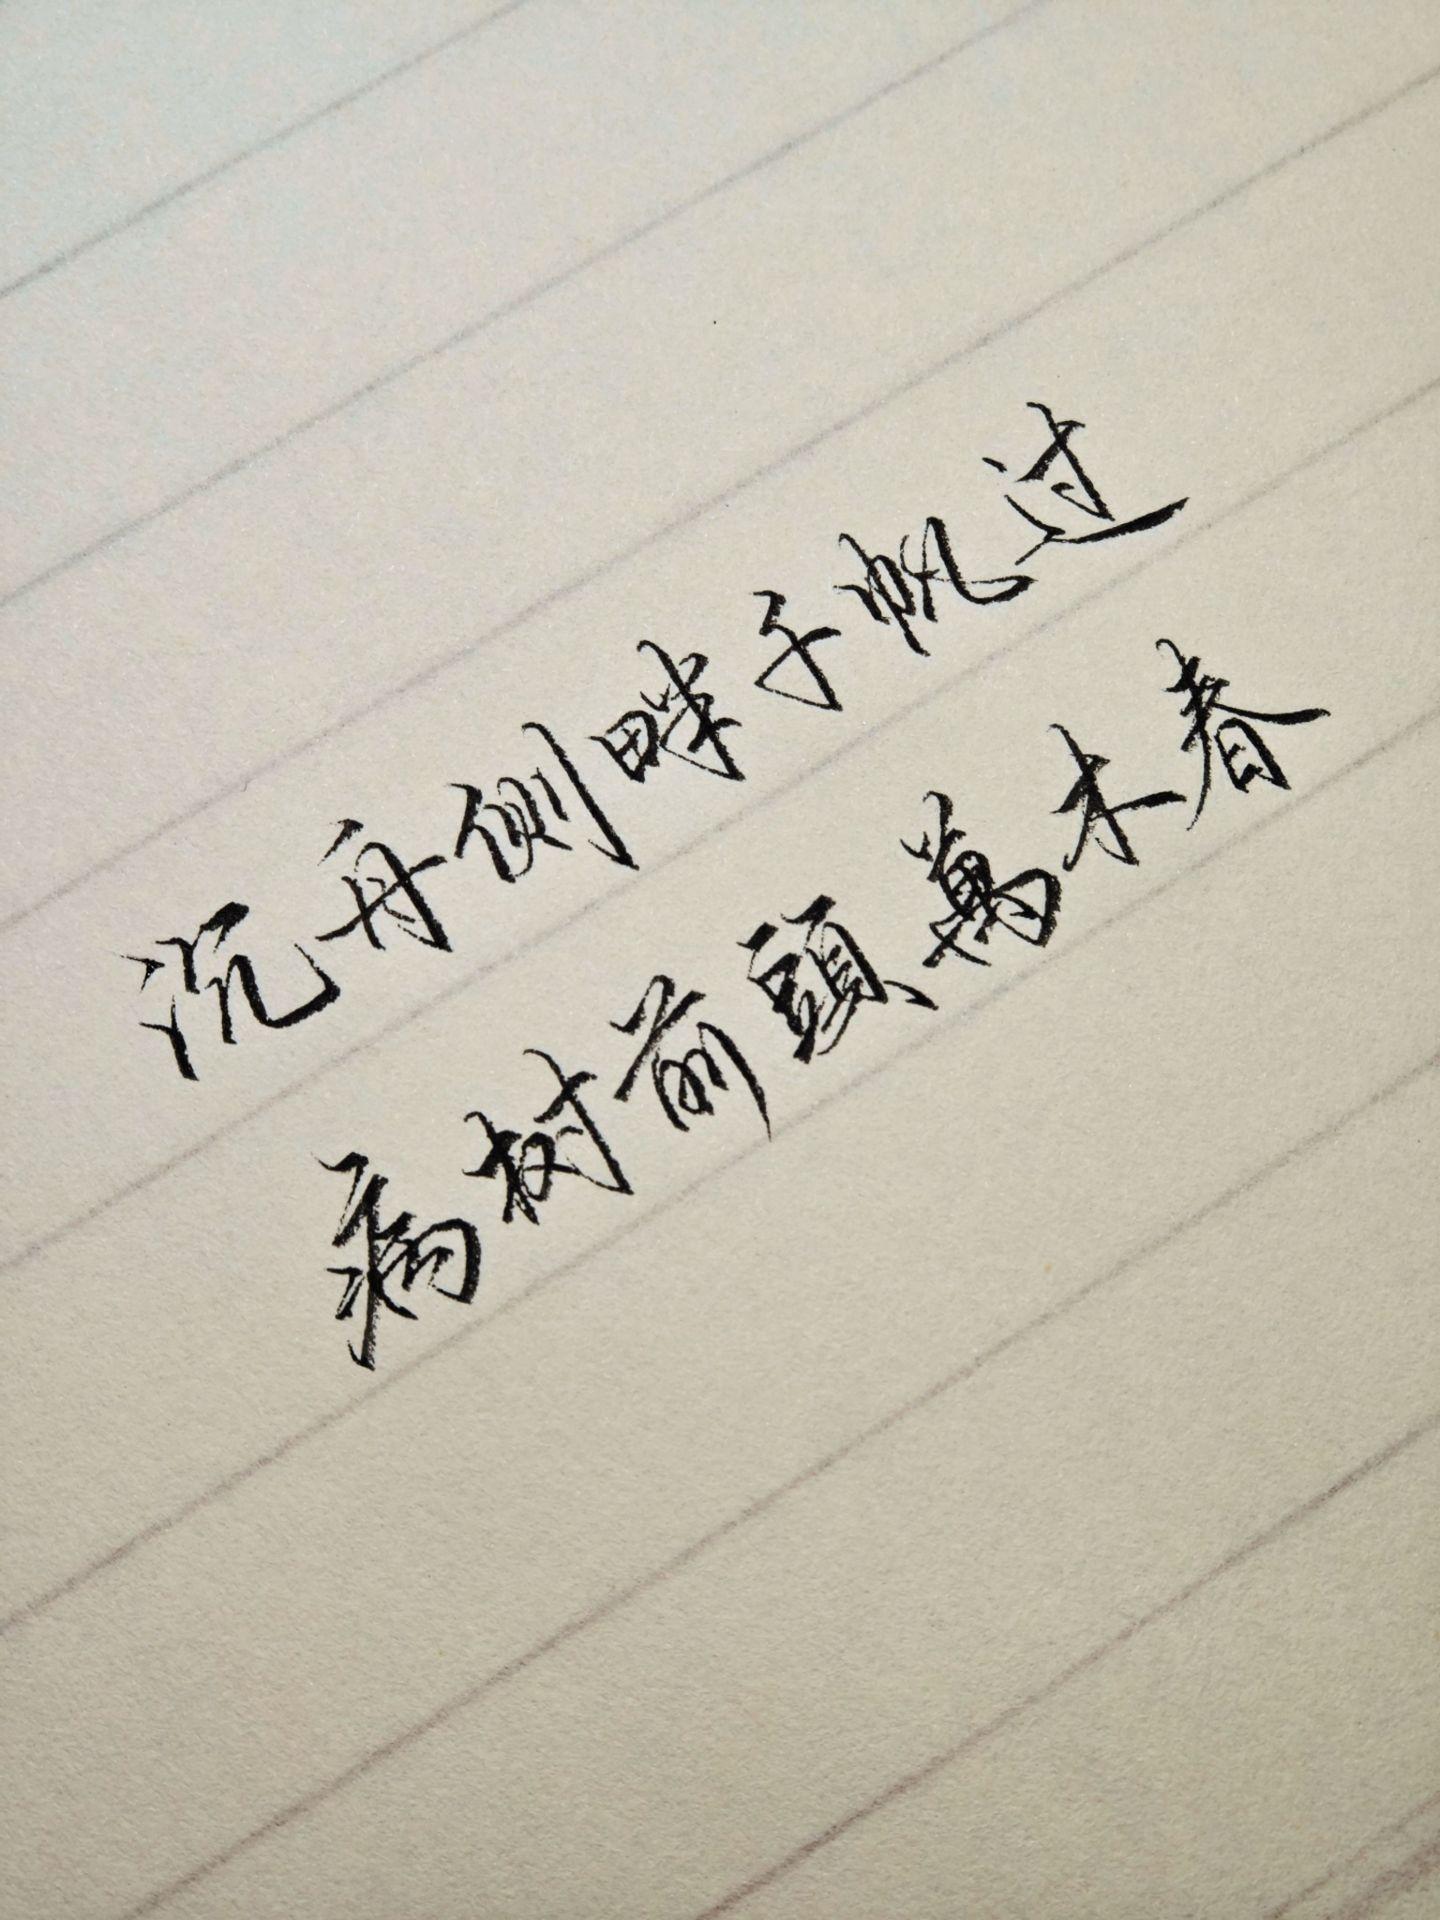 沉舟侧畔千帆过
病树前頭萬木春